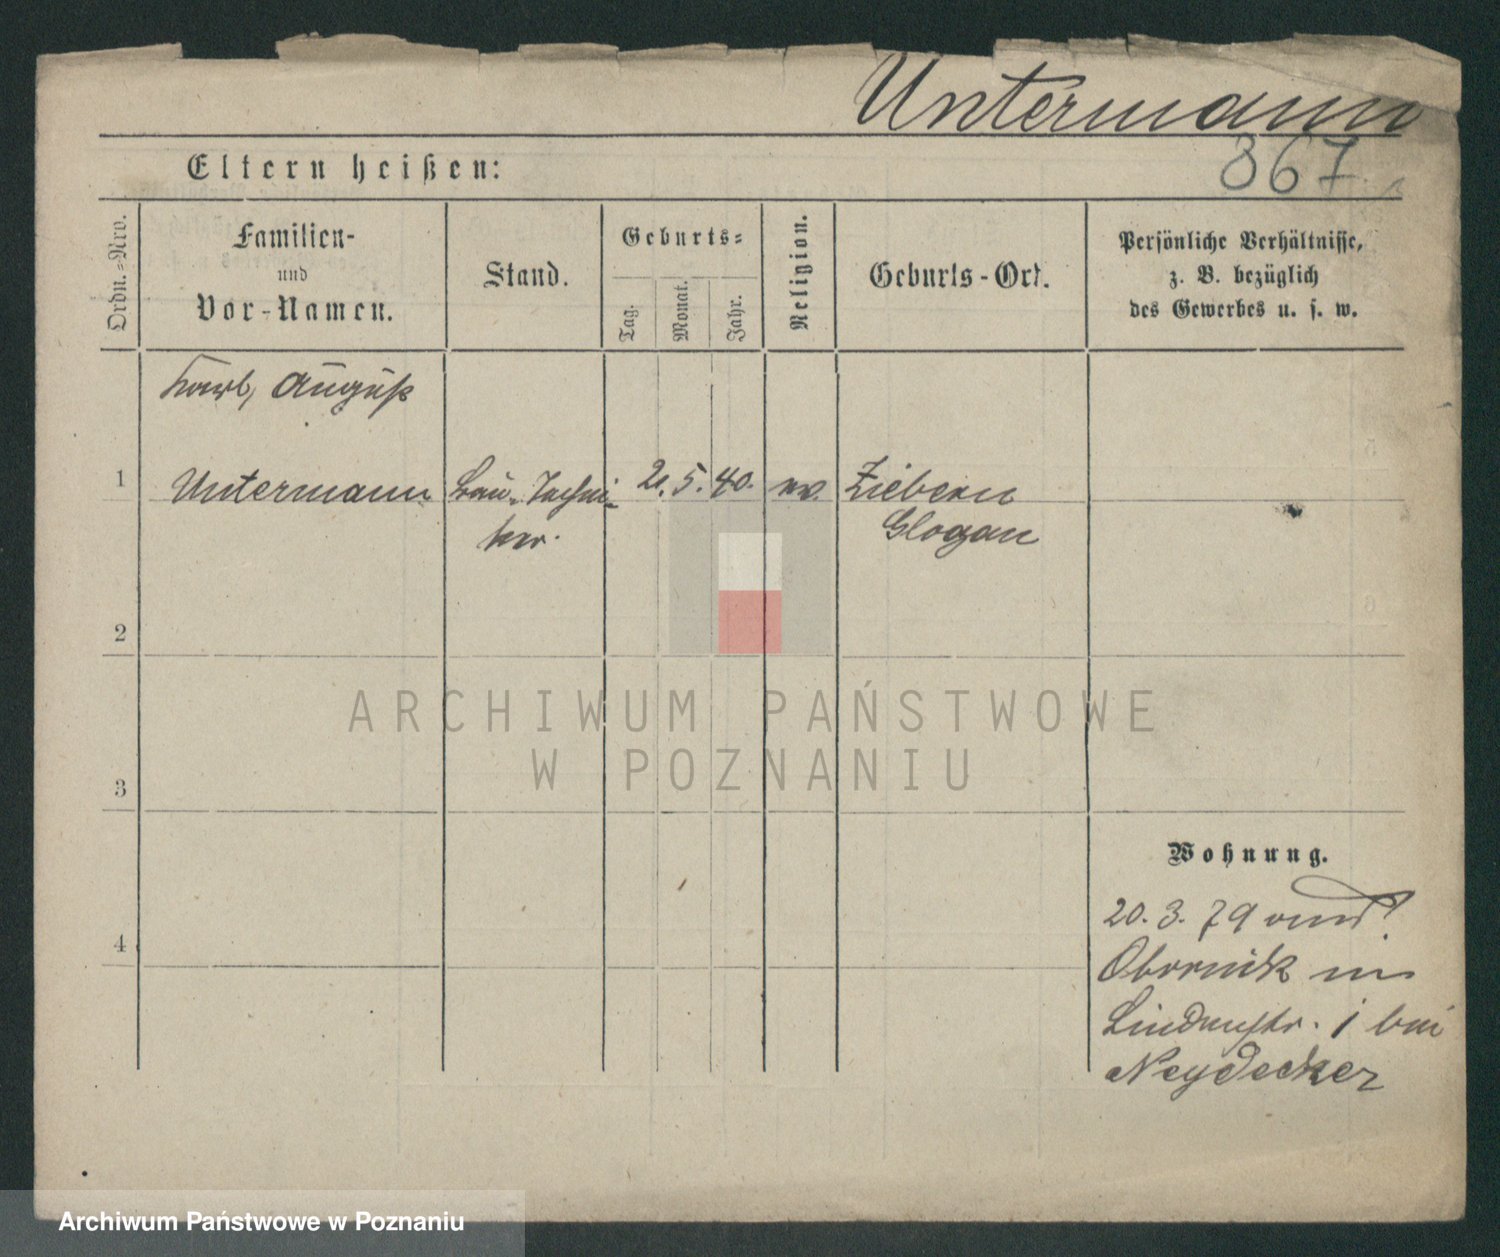 Untermann
867
Eltern heißen:
Ordn.-Nro.
Familien-
und
Vor-Namen.
Stand.
Geburts-
Tag.
Monat.
Jahr.
Religion.
Geburts-Ort.
Persönliche Verhältnisse,
z. B. bezüglich
des Gewerbes u. s. w.
Karl, August
1 Untermann Bau-Techni- 5. 40. ev. Ziebern
ker. Glogau
2
ARCHIWUM PAŃSTWOWE
W POZNANIU
3
Wohnung.
4
20. 3. 79 von
Obornik in
Lindenstr. 1 bei
Neydecker
Archiwum Państwowe w Poznaniu